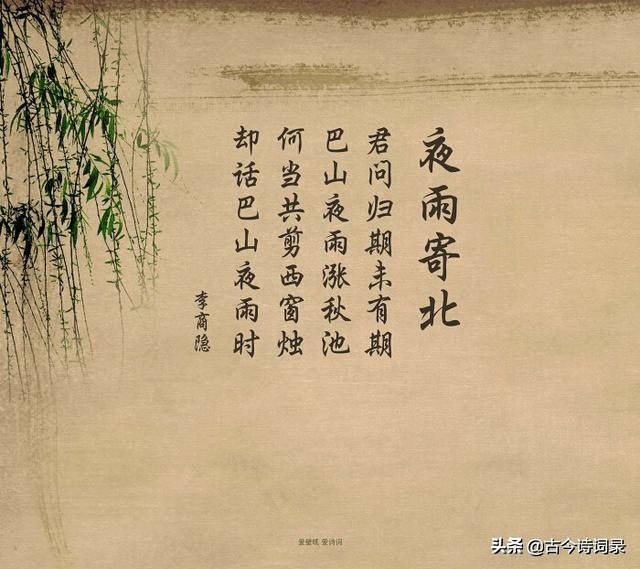 夜雨寄北
君问归期未有期
巴山夜雨涨秋池
何当共剪西窗烛
却话巴山夜雨时
李商隐
爱壁纸 爱诗词
头条@古今诗词录